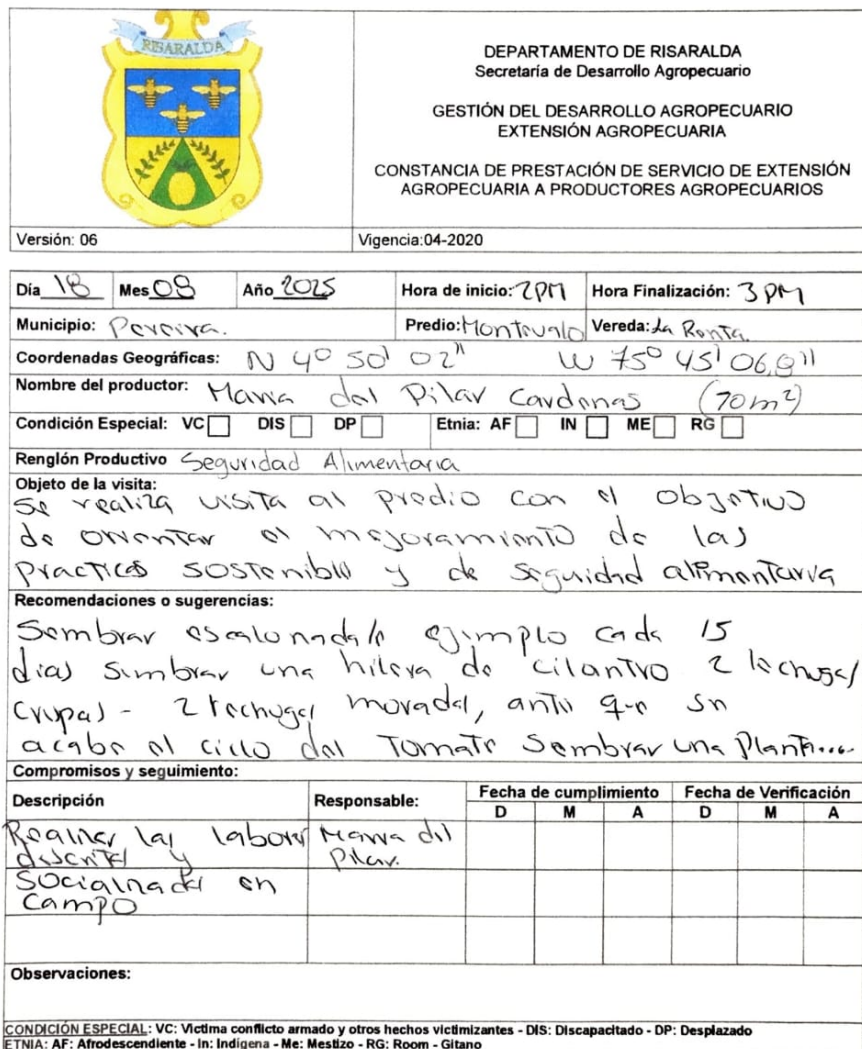 RISARALDA
DEPARTAMENTO DE RISARALDA
Secretaría de Desarrollo Agropecuario
GESTIÓN DEL DESARROLLO AGROPECUARIO
EXTENSIÓN AGROPECUARIA
CONSTANCIA DE PRESTACIÓN DE SERVICIO DE EXTENSIÓN
AGROPECUARIA A PRODUCTORES AGROPECUARIOS
Versión: 06 Vigencia:04-2020
Día 18 Mes 08 Año 2025 Hora de inicio: 2PM Hora Finalización: 3 PM
Municipio: Pereira. Predio: Montevalo Vereda: La Renta
Coordenadas Geográficas: N 4° 50' 02" W 75° 45' 06,8"
Nombre del productor: Maria del Pilar Cardenas (70 m²)
Condición Especial: VC DIS DP Etnia: AF IN ME RG
Renglón Productivo Seguridad Alimentaria
Objeto de la visita:
Se realiza visita al predio con el objetivo
de orientar el mejoramiento de las
practicas sostenible y de seguidad alimentaria
Recomendaciones o sugerencias:
Sembrar escalonada ejemplo cada 15
dias sembrar una hilera de cilantro 2 lechugas
crespas - 2 lechugas moradas, antes que se
acabe el ciclo del Tomate Sembrar una Planta....
Compromisos y seguimiento:
Descripción Responsable: Fecha de cumplimiento Fecha de Verificación
D M A D M A
Realizar las labores Maria del
descritas y Pilar.
Socializadas en
Campo
Observaciones:
CONDICIÓN ESPECIAL: VC: Victima conflicto armado y otros hechos victimizantes - DIS: Discapacitado - DP: Desplazado
ETNIA: AF: Afrodescendiente - In: Indígena - Me: Mestizo - RG: Room - Gitano